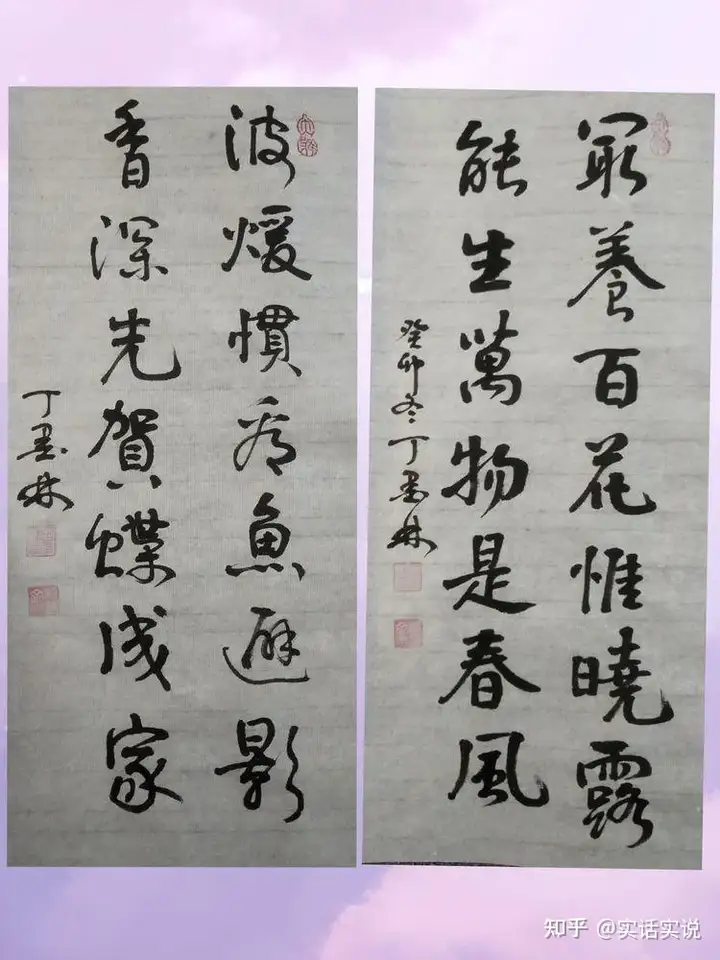 最養百花惟曉露
能生萬物是春風
癸卯冬丁墨林
波煖慣看魚避影
香深先賀蝶成家
丁墨林
知乎 @实话实说